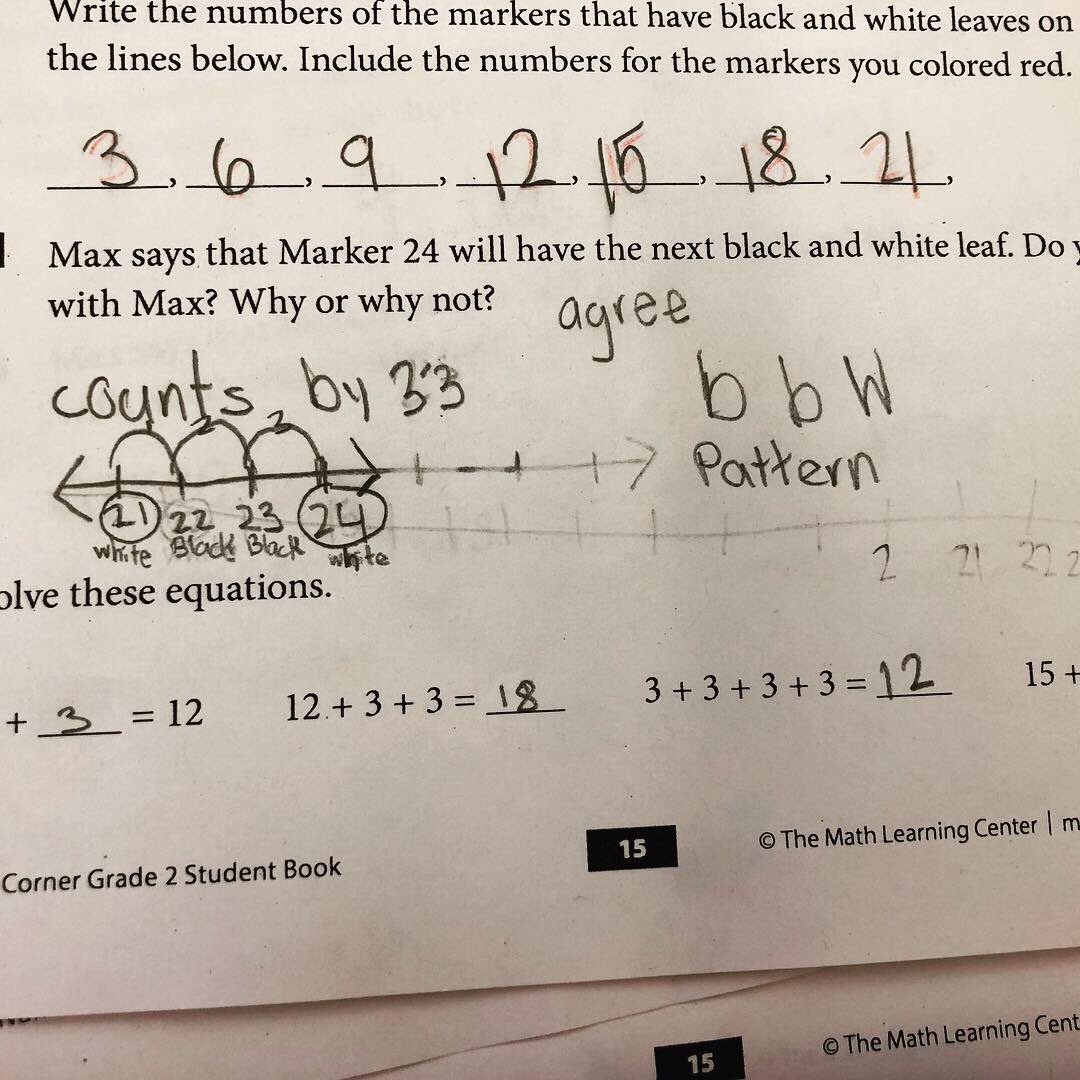 Write the numbers of the markers that have black and white leaves on
the lines below. Include the numbers for the markers you colored red.
3, 6, 9, 12, 15, 18, 21,
Max says that Marker 24 will have the next black and white leaf. Do y
with Max? Why or why not? agree
counts by 3's
b b W
Pattern
21 22 23 24
white Black Black white
2 21 22 2
olve these equations.
+ 3 = 12 12 + 3 + 3 = 18 3 + 3 + 3 + 3 = 12 15 +
Corner Grade 2 Student Book 15 © The Math Learning Center | m
15 © The Math Learning Cent